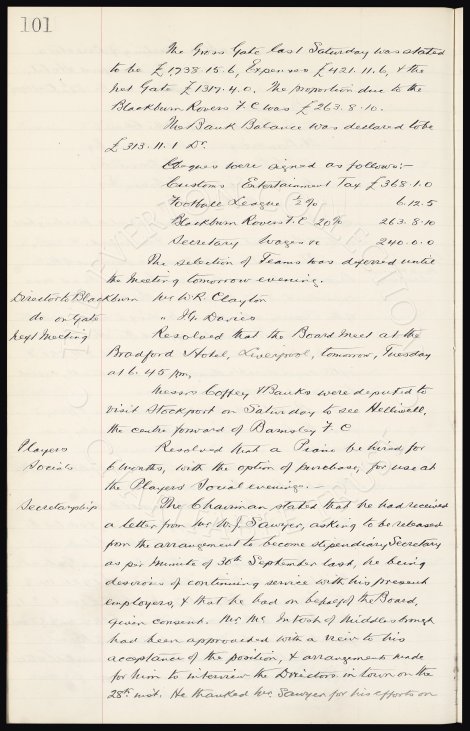 101
The Gross Gate last Saturday was stated
to be £1738.15.6, Expenses £421.11.6, & the
net Gate £1317.4.0. The proportion due to the
Blackburn Rovers F.C was £263.8.10.
The Bank Balance was declared to be
£313.11.1 Dr.
Cheques were signed as follows:-
Customs Entertainment Tax £368.1.0
Football League ½% 6.12.5
Blackburn Rovers F.C. 20% 263.8.10
Secretary Wages 240.0.0
The selection of Teams was deferred until
the Meeting tomorrow evening.
Director to Blackburn Mr W.R. Clayton
do on Gate " Davies
Next Meeting Resolved that the Board meet at the
Bradford Hotel, Liverpool, tomorrow, Tuesday
at 6.45 pm,
Messrs Coffey & Banks were deputed to
visit Stockport on Saturday to see Helliwell,
the centre forward of Barnsley F.C
Players Resolved that a Piano be hired for
Socials 6 months, with the option of purchase, for use at
the Players Social evenings.-
Secretaryship The Chairman stated that he had received
a letter from Mr W.J. Sawyer, asking to be released
from the arrangement to become stipendiary Secretary
as per Minute of 30th September last, he being
desirous of continuing service with his present
employers, & that he had on behalf of the Board,
given consent. Mr Mc Intosh of Middlesbrough
had been approached with a view to his
acceptance of the position, & arrangements made
for him to interview the Directors in town on the
28th inst. He thanked Mr. Sawyer for his efforts on